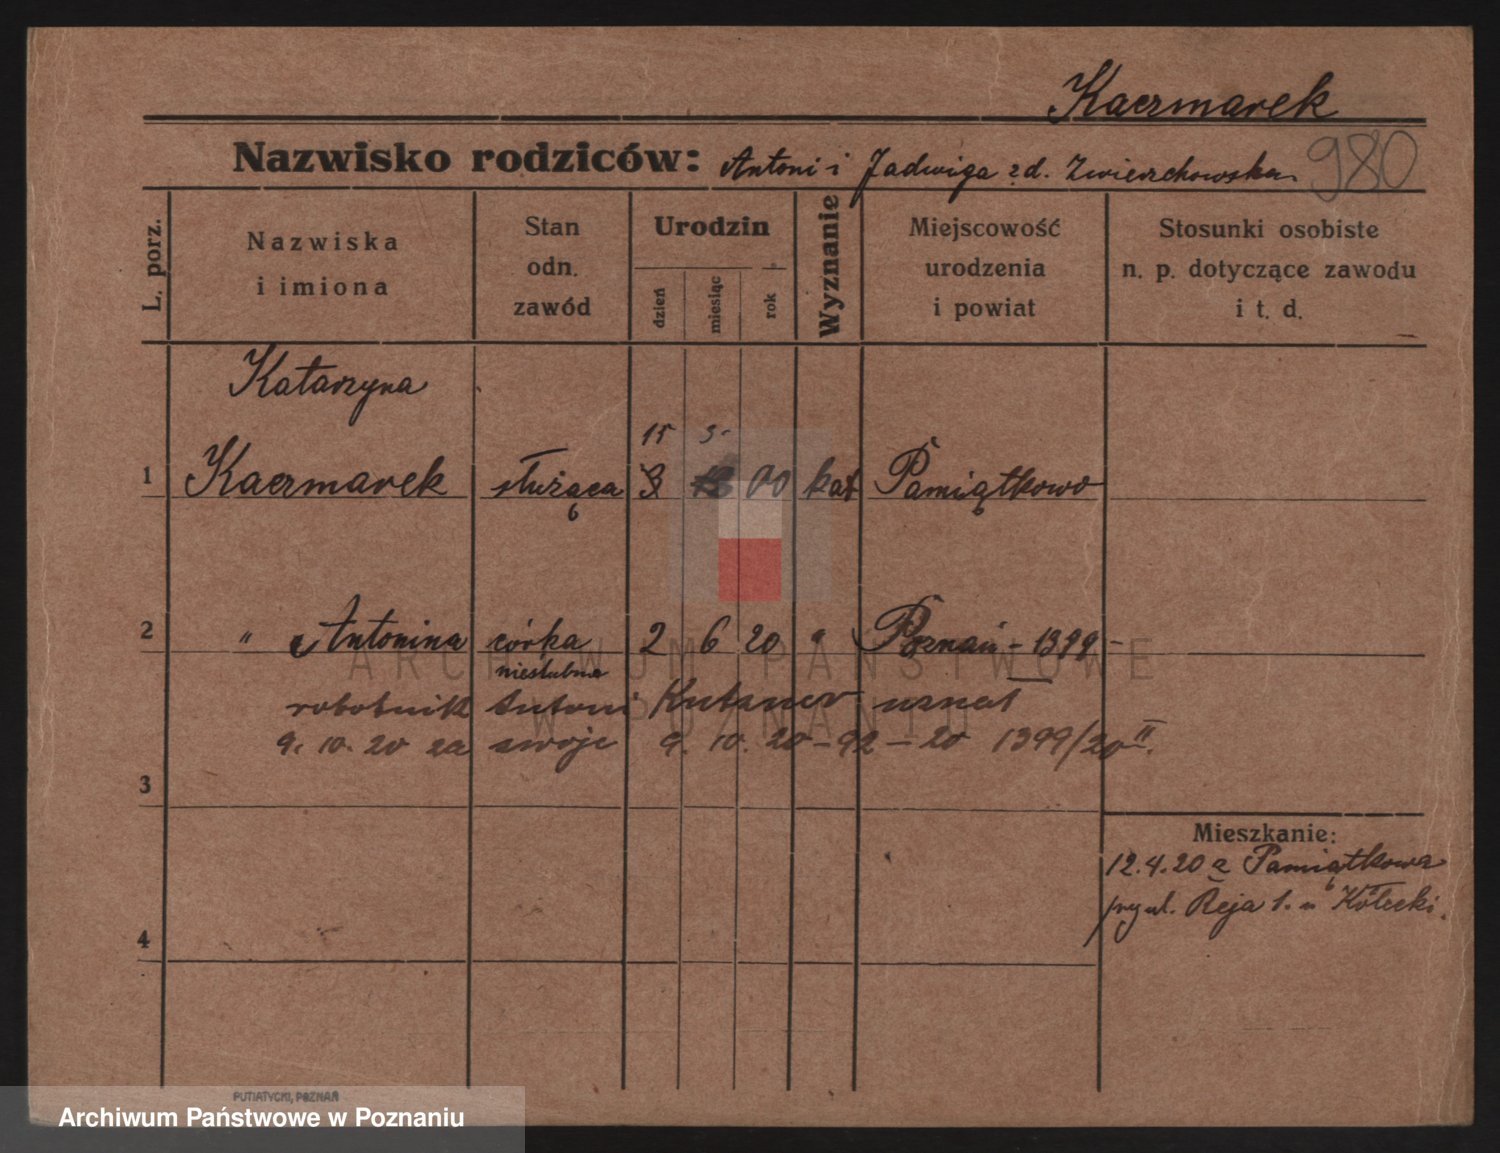 Kaczmarek
Nazwisko rodziców: Antoni i Jadwiga zd. Zwierzchowska 980
L. porz.
Nazwiska
i imiona
Stan
odn.
zawód
Urodzin
dzień
miesiąc
rok
Wyznanie
Miejscowość
urodzenia
i powiat
Stosunki osobiste
n. p. dotyczące zawodu
i t. d.
Katarzyna
15 3
1 Kaczmarek służąca 3 00 kat Pamiątkowo
2 " Antonina córka 2 6 20 " Poznań - 1399 -
nieślubna
robotnik Antoni uznał
9. 10. 20 za swoje 9. 10. 20 - 92 - 20 1399/20 II.
3
Mieszkanie:
12.4.20 z Pamiątkowa
ul. Reja 1. u Kołecki.
4
PUTIATYCKI, POZNAŃ
ARCHIWUM PAŃSTWOWE
W POZNANIU
Archiwum Państwowe w Poznaniu